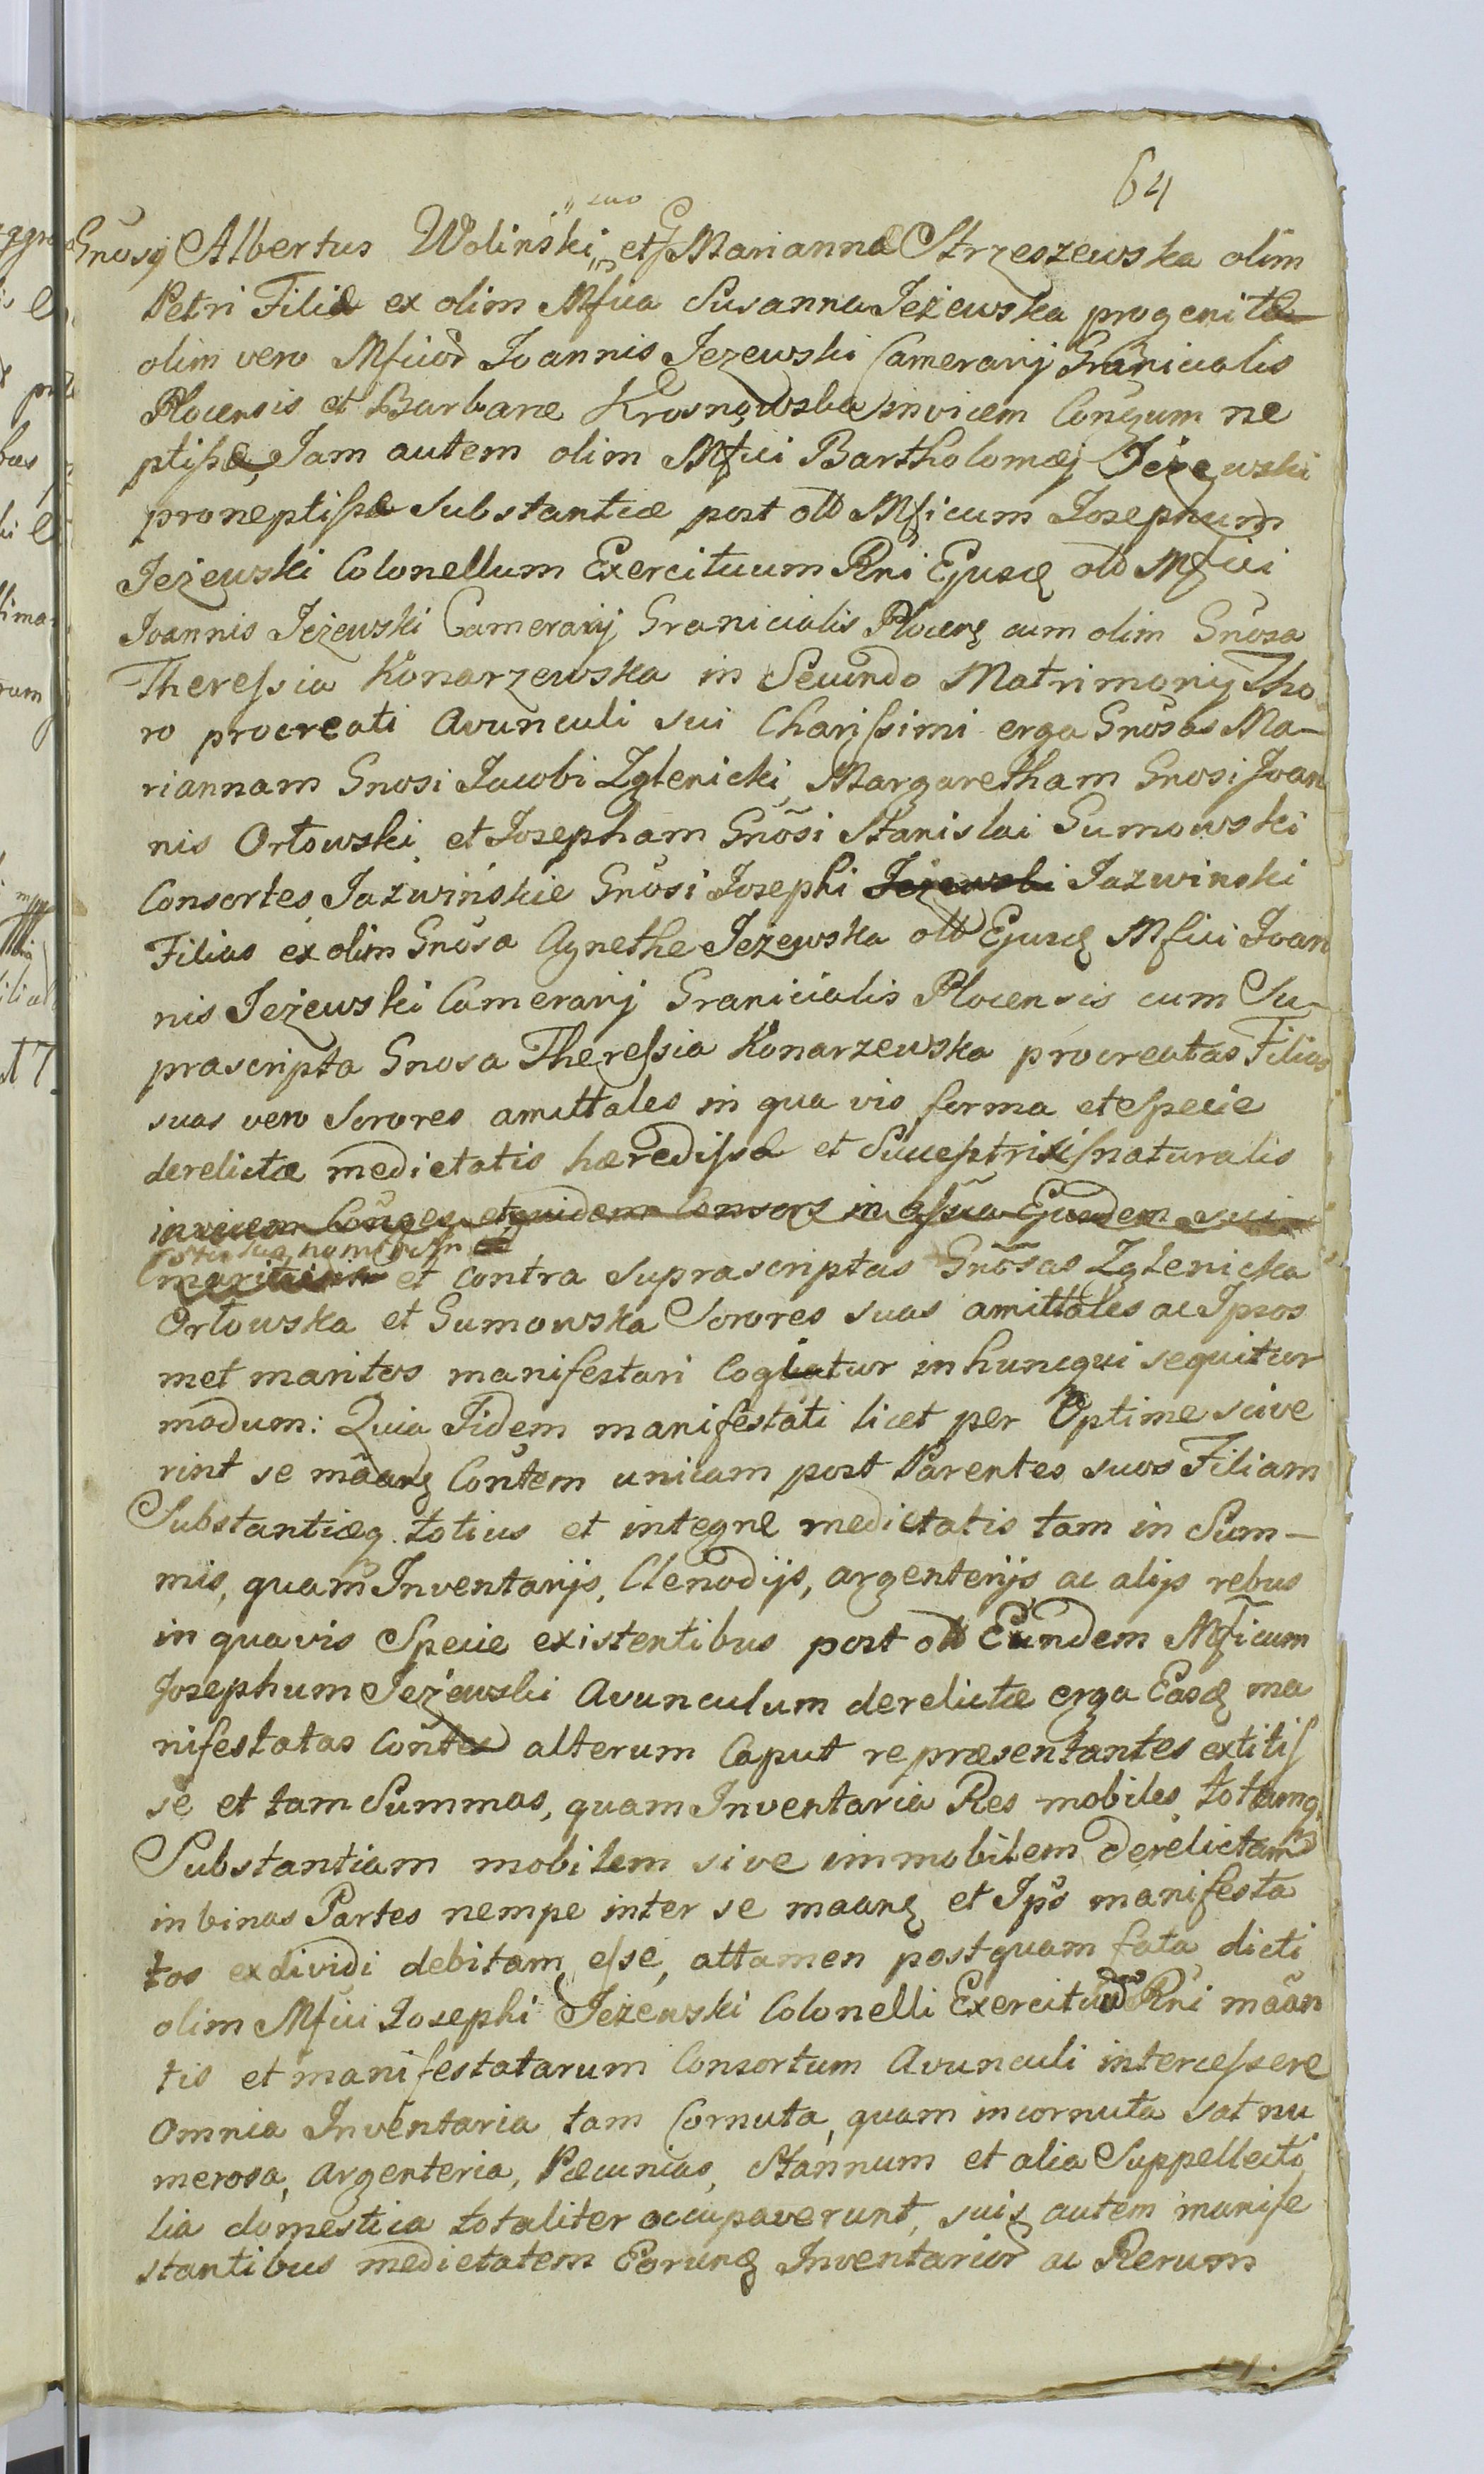 64
suo
Gnosq Albertus Wolinski et G Marianna Strzeszewska olim
Petri Filiæ ex olim Mfica Susanna Jeżewska progenitæ
olim vero Mficor Joannis Jezewski Camerarij Granicialis
Plocensis et Barbaræ Krosnowska invicem Coñgum ne
ptißæ, Jam autem olim Mfici Bartholomæj Jeżewski
proneptißæ substantiæ post olb Mficum Josephum
Jeżewski Colonellum Exercituum Rni Ejusq olb Mfici
Joannis Jeżewski Camerarij Granicialis Plocenq cum olim Gnosa
Thereßia Konarzewska in Secundo Matrimonij Tho
ro procreati Avunculi sui Charißimi erga Gnosas Ma-
riannam Gnosi Jacobi Zglenicki, Margaretham Gnosi Joan
nis Orłowski, et Josepham Gnõsi Stanislai Gumowski
Consortes Jazwińskie Gnosi Josephi Jeżewski Jazwinski
Filias ex olim Gnosa Agnethe Jeżewska olb Ejusq Mfici Joan
nis Jeżewski Camerarij Granicialis Plocensis cum Su-
prascripta Gnosa Thereßia Konarzewska procreatas Filias
suas vero Sorores amittales in qua vis forma et specie
derelictæ medietatis hæredißa et Succeptrix naturalis
invicem Coñges et quidem Consors in aßña Ejusdem sui
et contra suprascriptas Gnõsas Zglenicka
Orłowska et Gumowska Sorores suas amittales ac Ipsos
met maritos manifestari Cogiatur in hunc qui sequitur
modum: Quia Iidem manifestati licet per Optime scive
rint se mãanq Coñtem unicam post Parentes suos Filiam
Substantiæq totius et integræ medietatis tam in Sum-
mis, quam Inventarijs, Clenodijs, argenterijs ac alijs rebus
in quavis Specie existentibus post olb Eundem Mficum
Josephum Jeżewski Avunculum derelictæ erga Easq ma
nifestatas Coñtes alterum Caput repræsentantes extitiß
se et tam Summas, quam Inventaria Res mobiles totamq
Substantiam mobilem sive immobilem derelictam
in binas Partes nempe inter se maanq et Ipõs manifesta
tos exdividi debitam eße, attamen postquam fata dicti
olim Mfici Josephi Jeżewski Colonelli Exercituum Rni mãan
tis et manifestatarum Consortum Avunculi interceßere
Omnia Inventaria tam Cornuta, quam incornuta sat nu
merosa, Argenteria, Pæcunias, Stannum et alia Suppellecti
lia domestica totaliter occupaverunt, suis autem manife
stantibus medietatem Eorunq Inventarior ac Rerum